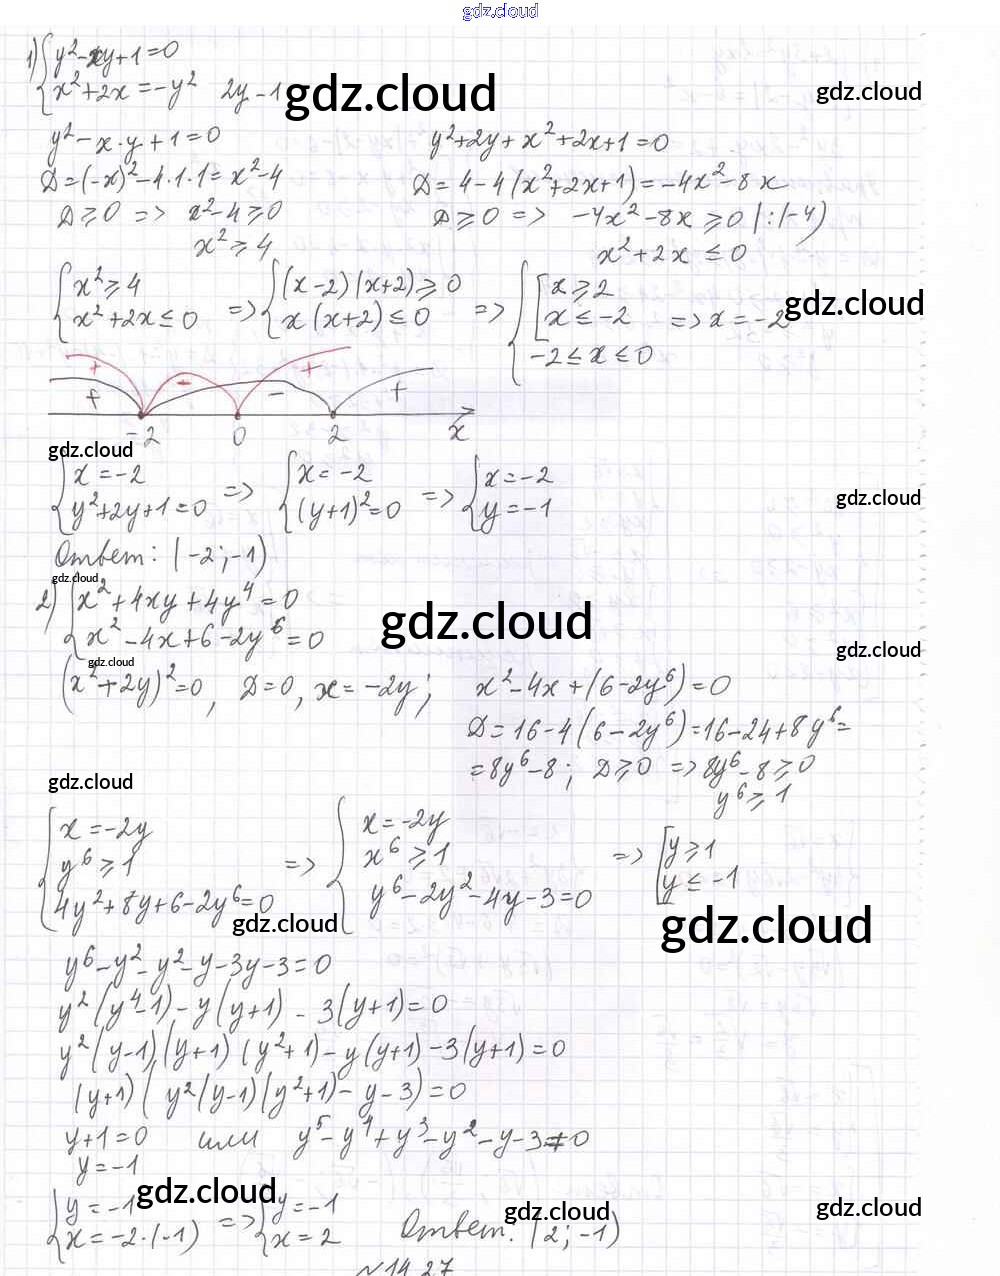 gdz.cloud
1) { y² - xy + 1 = 0
{ x² + 2x = -y² 2y - 1 gdz.cloud gdz.cloud
y² - x·y + 1 = 0 y² + 2y + x² + 2x + 1 = 0
D = (-x)² - 4·1·1 = x² - 4 D = 4 - 4(x² + 2x + 1) = -4x² - 8x
D ≥ 0 => x² - 4 ≥ 0 D ≥ 0 => -4x² - 8x ≥ 0 |:(-4)
x² ≥ 4 x² + 2x ≤ 0
{ x² ≥ 4 { (x-2)(x+2) ≥ 0 { [ x ≥ 2 gdz.cloud
{ x² + 2x ≤ 0 => { x(x+2) ≤ 0 => { [ x ≤ -2 => x = -2
{ -2 ≤ x ≤ 0
+ - +
+ - +
-2 0 2 x
gdz.cloud
{ x = -2 => { x = -2 => { x = -2
{ y² + 2y + 1 = 0 { (y+1)² = 0 { y = -1 gdz.cloud
Ответ: (-2; -1)
gdz.cloud
2) { x² + 4xy + 4y⁴ = 0
{ x² - 4x + 6 - 2y⁶ = 0 gdz.cloud gdz.cloud
gdz.cloud
(x² + 2y)² = 0, D = 0, x = -2y; x² - 4x + (6 - 2y⁶) = 0
D = 16 - 4(6 - 2y⁶) = 16 - 24 + 8y⁶ =
= 8y⁶ - 8; D ≥ 0 => 8y⁶ - 8 ≥ 0
gdz.cloud y⁶ ≥ 1
{ x = -2y { x = -2y
{ y⁶ ≥ 1 => { x⁶ ≥ 1 => [ y ≥ 1
{ 4y² + 8y + 6 - 2y⁶ = 0 { y⁶ - 2y² - 4y - 3 = 0 [ y ≤ -1
gdz.cloud gdz.cloud
y⁶ - y² - y² - y - 3y - 3 = 0
y² (y⁴ - 1) - y(y+1) - 3(y+1) = 0
y² (y-1)(y+1)(y²+1) - y(y+1) - 3(y+1) = 0
(y+1)(y²(y-1)(y²+1) - y - 3) = 0
y + 1 = 0 или y⁵ - y⁴ + y³ - y² - y - 3 ≠ 0
y = -1
gdz.cloud gdz.cloud gdz.cloud
{ y = -1 => { y = -1
{ x = -2·(-1) { x = 2 Ответ: (2; -1)
№14.27